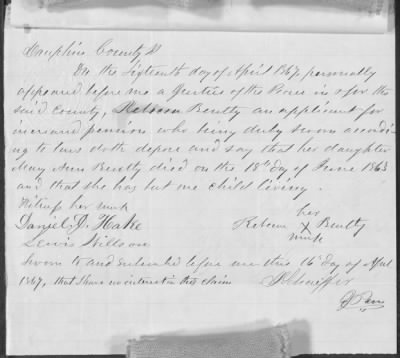 Dauphin County SS
On the Sixteenth day of April 1867 personally
appeared before me a Justice of the Peace in & for the
said County, Rebecca Beutty an applicant for
increased pension who being duly sworn accord
ing to law doth depose and say that her daughter
Mary Ann Beutty died on the 18th day of June 1863
and that she has but one child living.
Witness her mark
Daniel J. Hake
Lewis Willson
her
Rebecca X Beutty
mark
Sworn to and subscribed before me this 16th day of April
1867, that I have no interest in this claim